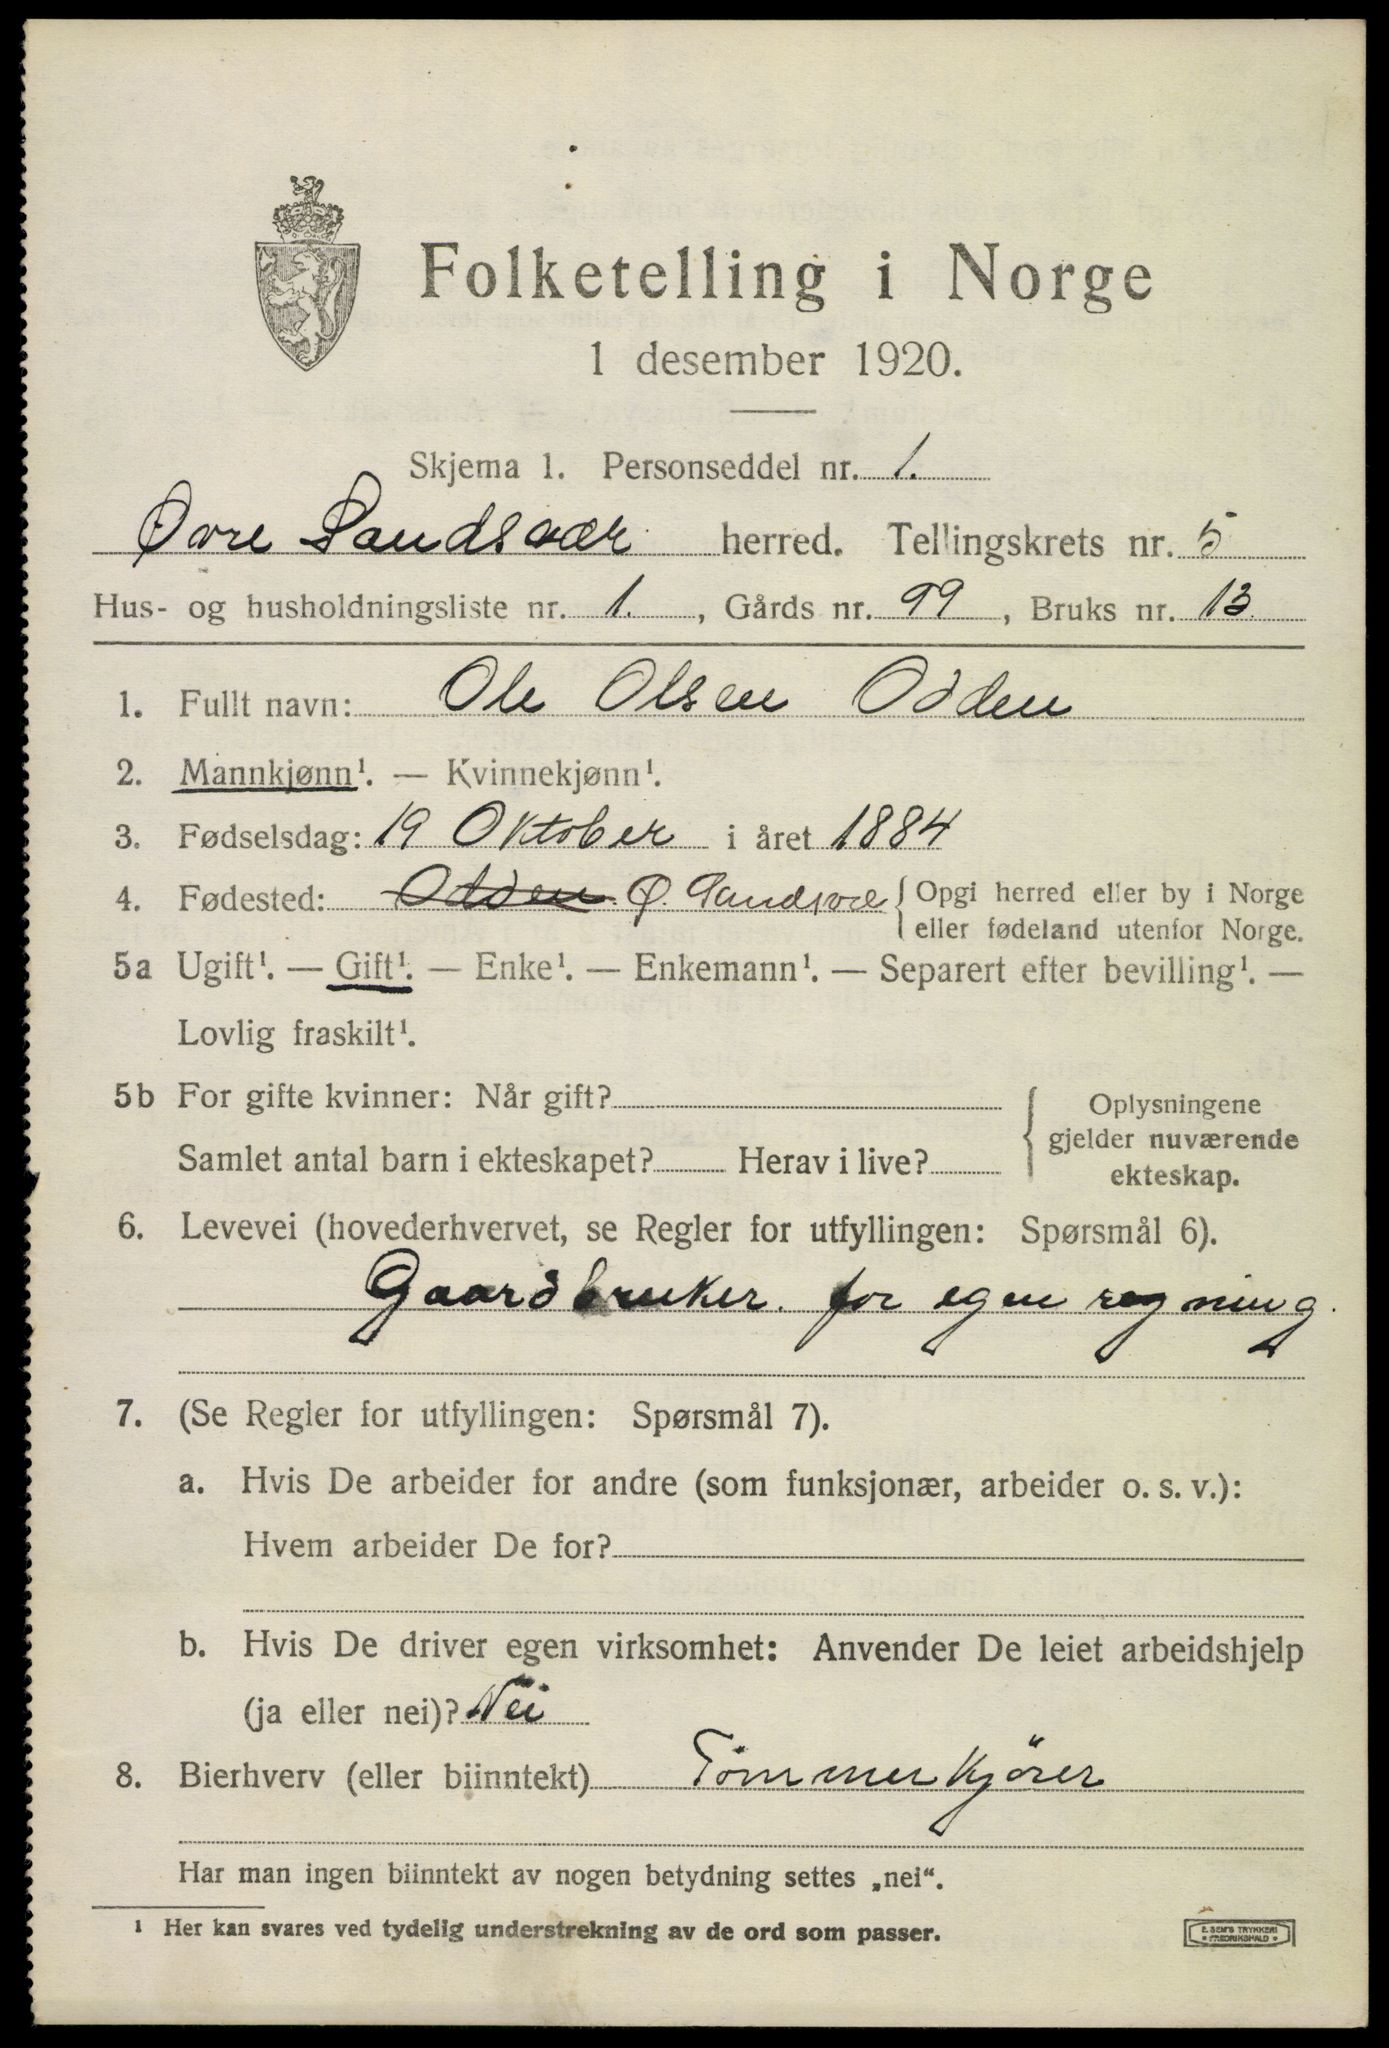 Folketelling i Norge
1 desember 1920.
Skjema 1. Personseddel nr. 1.
Øvre Sandsvær herred. Tellingskrets nr. 5
Hus- og husholdningsliste nr. 1. , Gårds nr. 99 , Bruks nr. 13.
1. Fullt navn: Ole Olsen Odden
2. Mannkjønn¹. — Kvinnekjønn¹.
3. Fødselsdag: 19 Oktober i året 1884
4. Fødested: Odden. Ø. Sandsvæ { Opgi herred eller by i Norge
eller fødeland utenfor Norge.
5a Ugift¹. — Gift¹. — Enke¹. — Enkemann¹. — Separert efter bevilling¹. —
Lovlig fraskilt¹.
5b For gifte kvinner: Når gift?
Samlet antal barn i ekteskapet? Herav i live?
Oplysningene
gjelder nuværende
ekteskap.
6. Levevei (hovederhvervet, se Regler for utfyllingen: Spørsmål 6).
Gaardbruker. for egen regning.
7. (Se Regler for utfyllingen: Spørsmål 7).
a. Hvis De arbeider for andre (som funksjonær, arbeider o. s. v.):
Hvem arbeider De for?
b. Hvis De driver egen virksomhet: Anvender De leiet arbeidshjelp
(ja eller nei)? Nei
8. Bierhverv (eller biinntekt) Tömmerkjörer
Har man ingen biinntekt av nogen betydning settes „nei“.
¹ Her kan svares ved tydelig understrekning av de ord som passer.
E. SEM'S TRYKKERI
• FREDRIKSHALD •